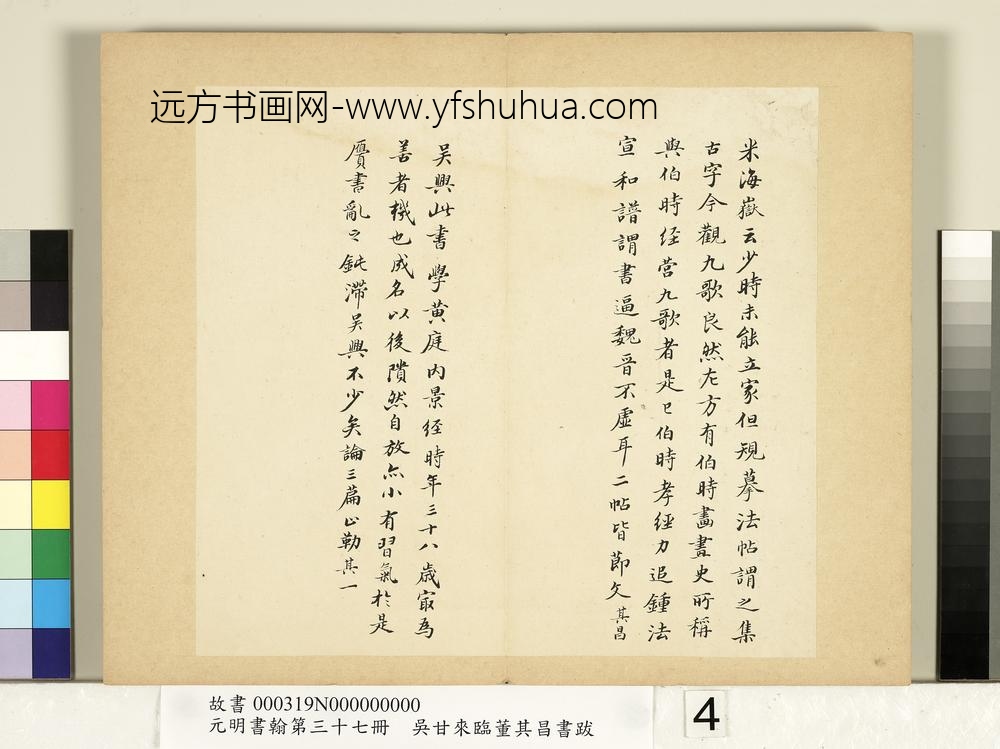 远方书画网-www.yfshuhua.com
米海嶽云少時未能立家但規摹法帖謂之集
古字今觀九歌良然左方有伯時畵畫史所稱
與伯時経營九歌者是已伯時孝經力追鍾法
宣和譜謂書逼魏晉不虛耳二帖皆節文其昌
吴興此書學黄庭内景経時年三十八歳㝡為
善者機也成名以後隤然自放亦小有習氣於是
贗書亂之鈍滯吴興不少矣論三篇止勒其一
故書 000319N000000000
元明書翰第三十七冊 吳甘來臨董其昌書跋
4